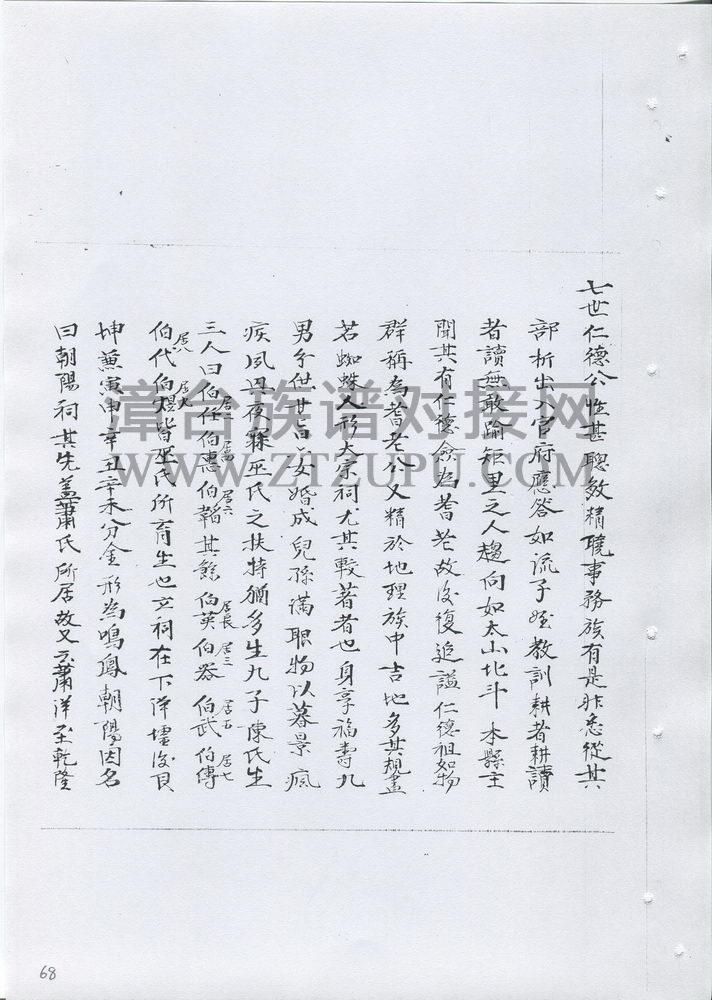 七世仁德公性甚聰敏精曉事務族有是非悉從其
部析出入官府應答如流子姪教訓耕者耕讀
者讀無敢踰矩里之人趨向如太山北斗本縣主
聞其有仁德僉為耆老故後復追謚仁德祖如物
群稱為耆老公又精於地理族中吉地多其規畫
若蜘蛛人形大宗祠尤其較著者也身享福壽九
男子世女婚成兒孫滿眼物以暮景瘋
疾夙興夜寐巫氏之扶持猶多生九子陳氏生
三人曰伯任居二伯惠居四伯韜居六其餘伯英居長伯器居三伯武居五伯傳居七
伯代居八伯煜居九皆巫氏所育生也立祠在下洋壚後艮
坤兼寅申辛丑辛未分金形為鳴鳳朝陽因名
曰朝陽祠其先蓋蕭氏所居故又云蕭洋至乾隆
漳台族谱对接网
WWW.ZTZUPU.COM
68